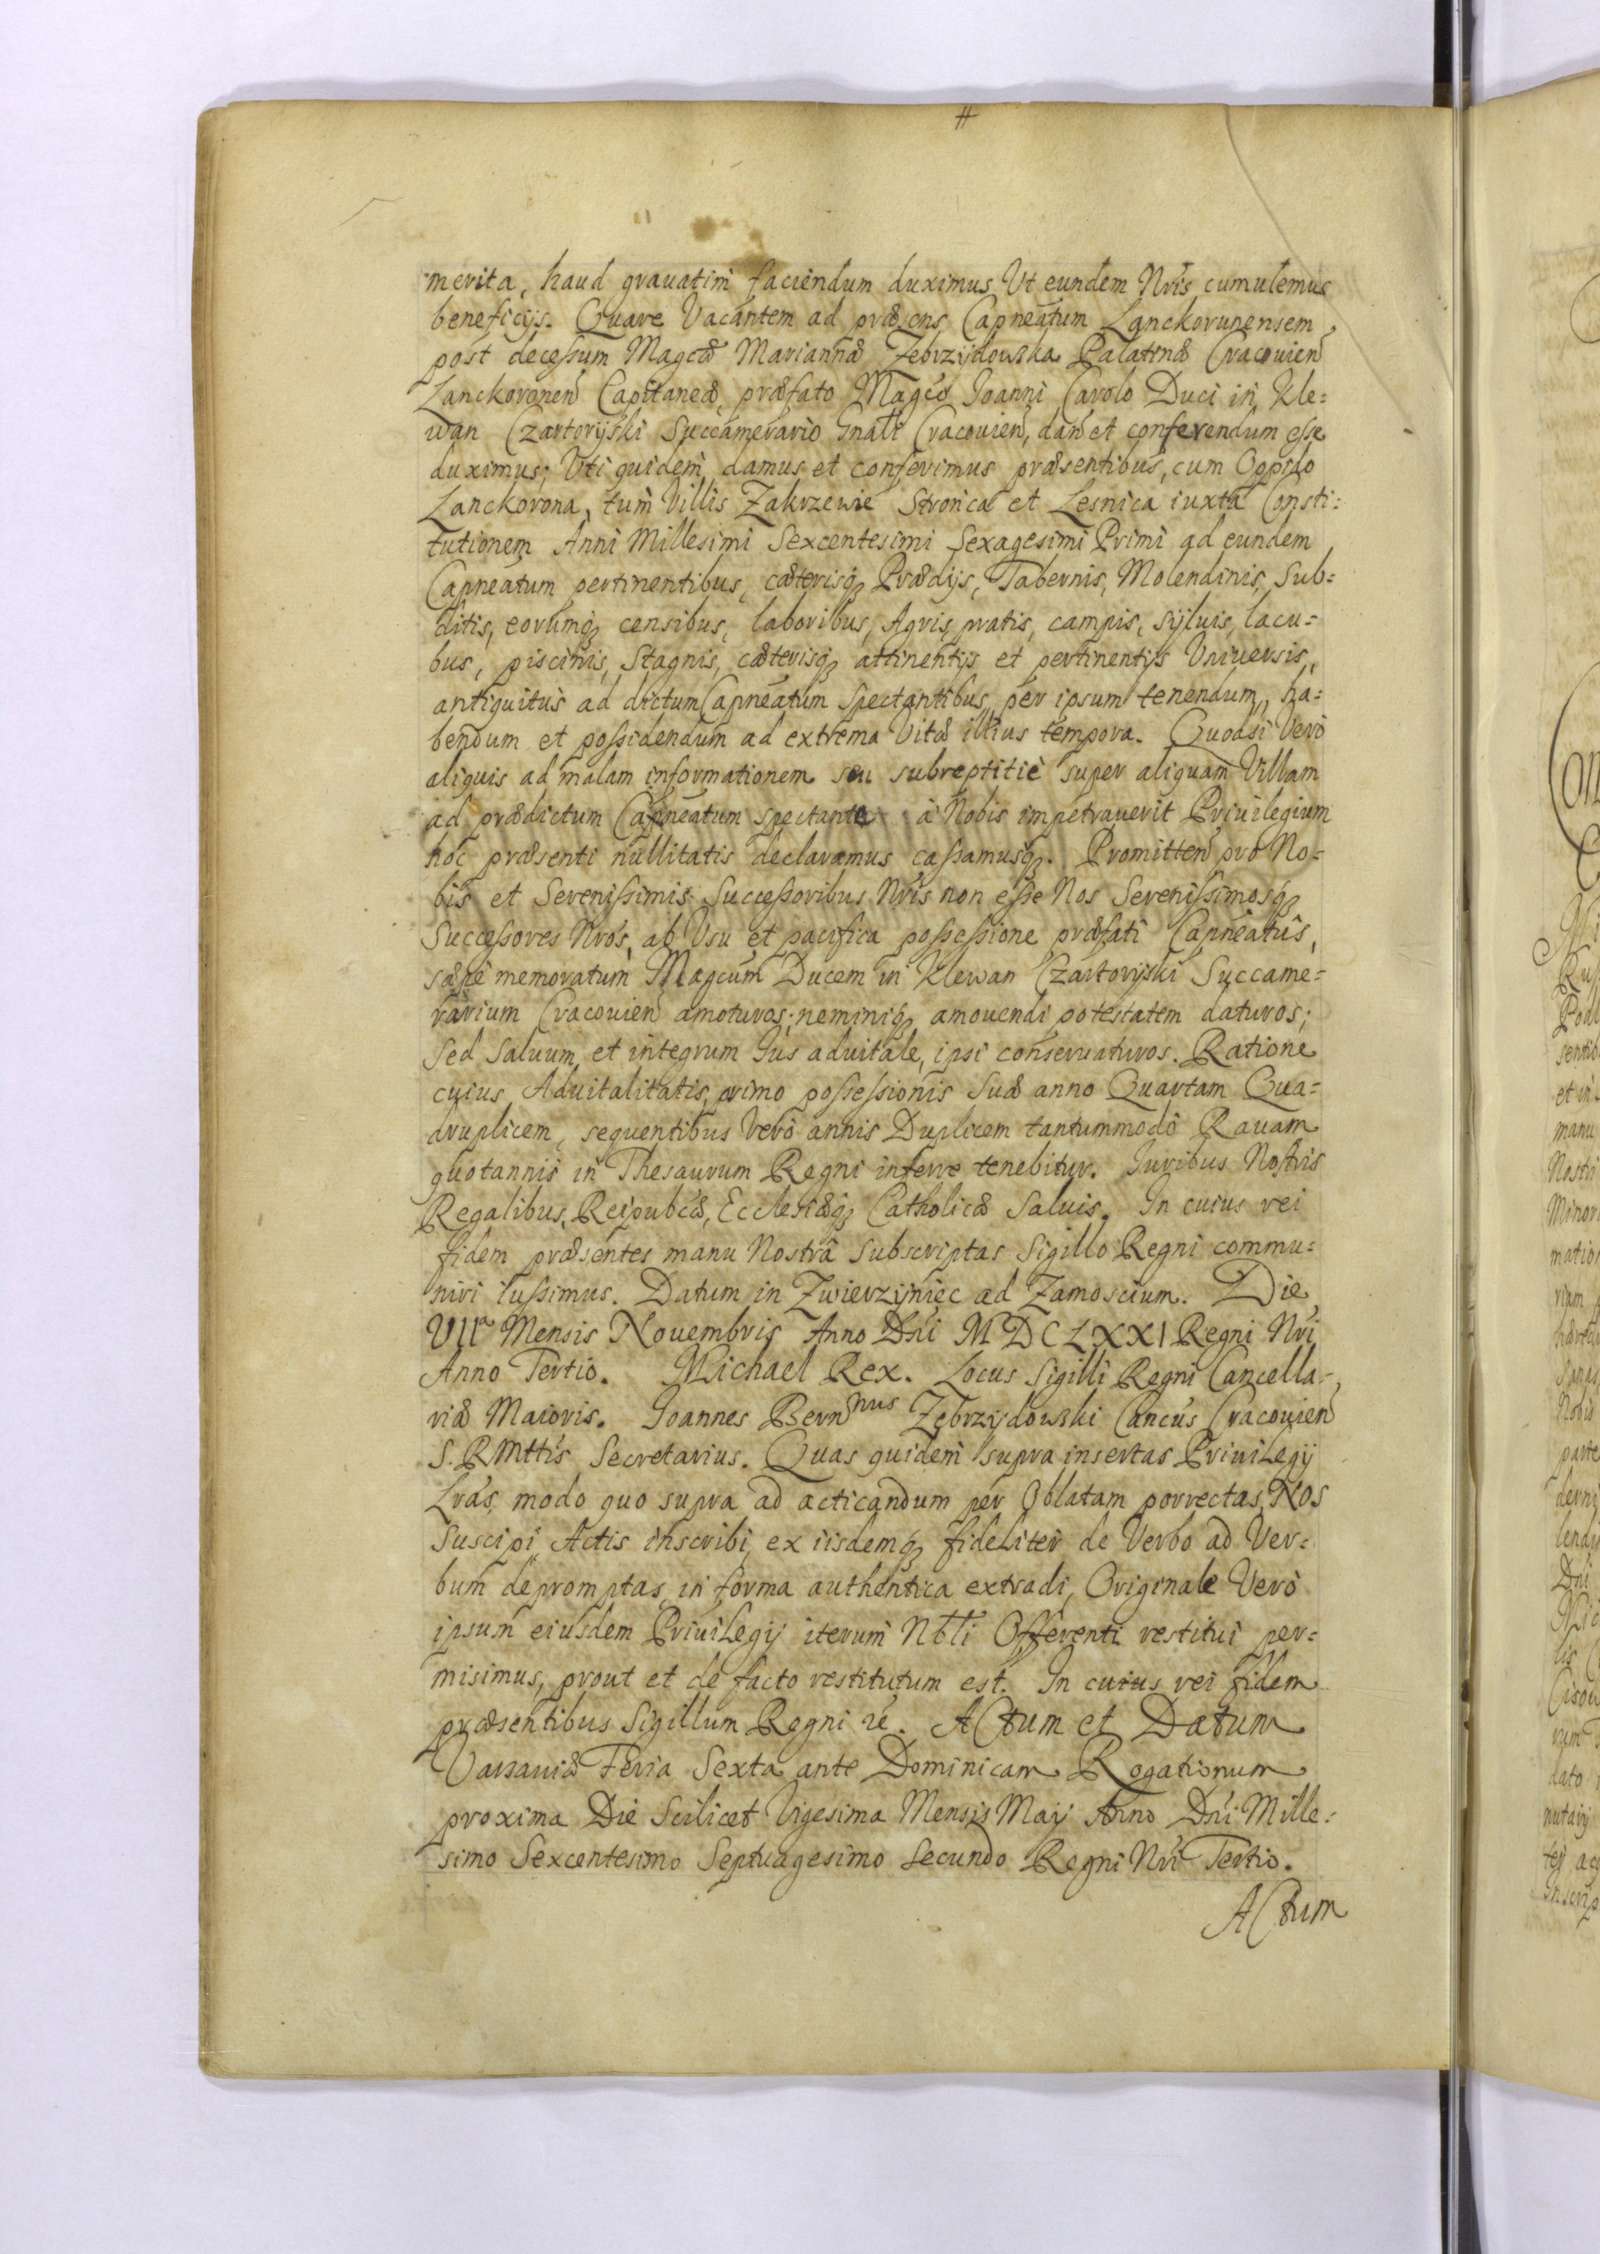 merita, haud grauatim faciendum duximus Vt eundem Nris cumulemus
beneficijs. Quare Vacantem ad præsens Capneatum Lanckorunensem
post decessum Magcæ Mariannæ Zebrzydowska Palatinæ Cracouien
Lanckoronen Capitaneæ, præfato Magco Joanni Carolo Duci in Kle=
wan Czartoryski Succamerario Gnali Cracouien, dan et conferendum esse
duximus; Vti quidem damus et conferimus præsentibus, cum Oppido
Lanckorona, tum Villis Zakrzewie Stronica et Lesnica iuxta Consti=
tutionem Anni Millesimi Sexcentesimi Sexagesimi Primi ad eundem
Capneatum pertinentibus, cæterisq Prædijs, Tabernis, Molendinis, Sub=
ditis, eorumq censibus, laboribus, Agris pratis, campis, syluis, lacu=
bus, piscinis, Stagnis, cæterisq attinentijs et pertinentijs Vniuersis,
antiquitus ad dictum Capneatum Spectantibus, per ipsum tenendum, ha=
bendum et possidendum ad extrema Vitæ illius tempora. Quodsi Verò
aliquis ad malam informationem seu subreptitiè super aliquam Villam
ad prædictum Capneatum spectante à Nobis impetrauerit Priuilegium
hoc præsenti nullitatis declaramus cassamusq. Promitten pro No=
bis et Serenissimis Successoribus Nris non esse Nos Serenissimosq
Successores Nros, ab Vsu et pacifica possessione præfati Capneatûs,
sæpe memoratum Magcum Ducem in Klewan Czartoryski Succame=
rarium Cracouien amoturos; neminiq amouendi potestatem daturos;
Sed Saluum et integrum Jus aduitale, ipsi conseruaturos. Ratione
cuius Aduitalitatis, primo possessionis Suæ anno Quartam Qua=
druplicem, sequentibus Verò annis Duplicem tantummodo Rauam
quotannis in Thesaurum Regni inferre tenebitur. Juribus Nostris
Regalibus, Reipubcæ, Ecclesiæq Catholicæ Saluis. In cuius rei
fidem præsentes manu Nostrâ Subscriptas Sigillo Regni commu=
niri iussimus. Datum in Zwierzyniec ad Zamoscium. Die
VIIa Mensis Nouembris Anno Dni MDCLXXI Regni Nri
Anno Tertio. Michael Rex. Locus Sigilli Regni Cancella=
riæ Maioris. Joannes Bernnus Zebrzydowski Cancus Cracouien
S. RMttis Secretarius. Quas quidem supra insertas Priuilegij
Lras, modo quo supra ad acticandum per Oblatam porrectas, Nos
suscipi Actis inscribi, ex iisdemq fideliter de Verbo ad Ver=
bum depromptas in forma authentica extradi, Originale Verò
ipsum eiusdem Priuilegij iterum Nbli Offerenti restitui per=
misimus, prout et de facto restitutum est. In cuius rei fidem
præsentibus Sigillum Regni re. Actum et Datum
Varsauiæ Feria Sexta ante Dominicam Rogationum
proxima Die Scilicet Vigesima Mensis Maij Anno Dni Mille=
simo Sexcentesimo Septuagesimo Secundo Regni Nri Tertio.
Actum